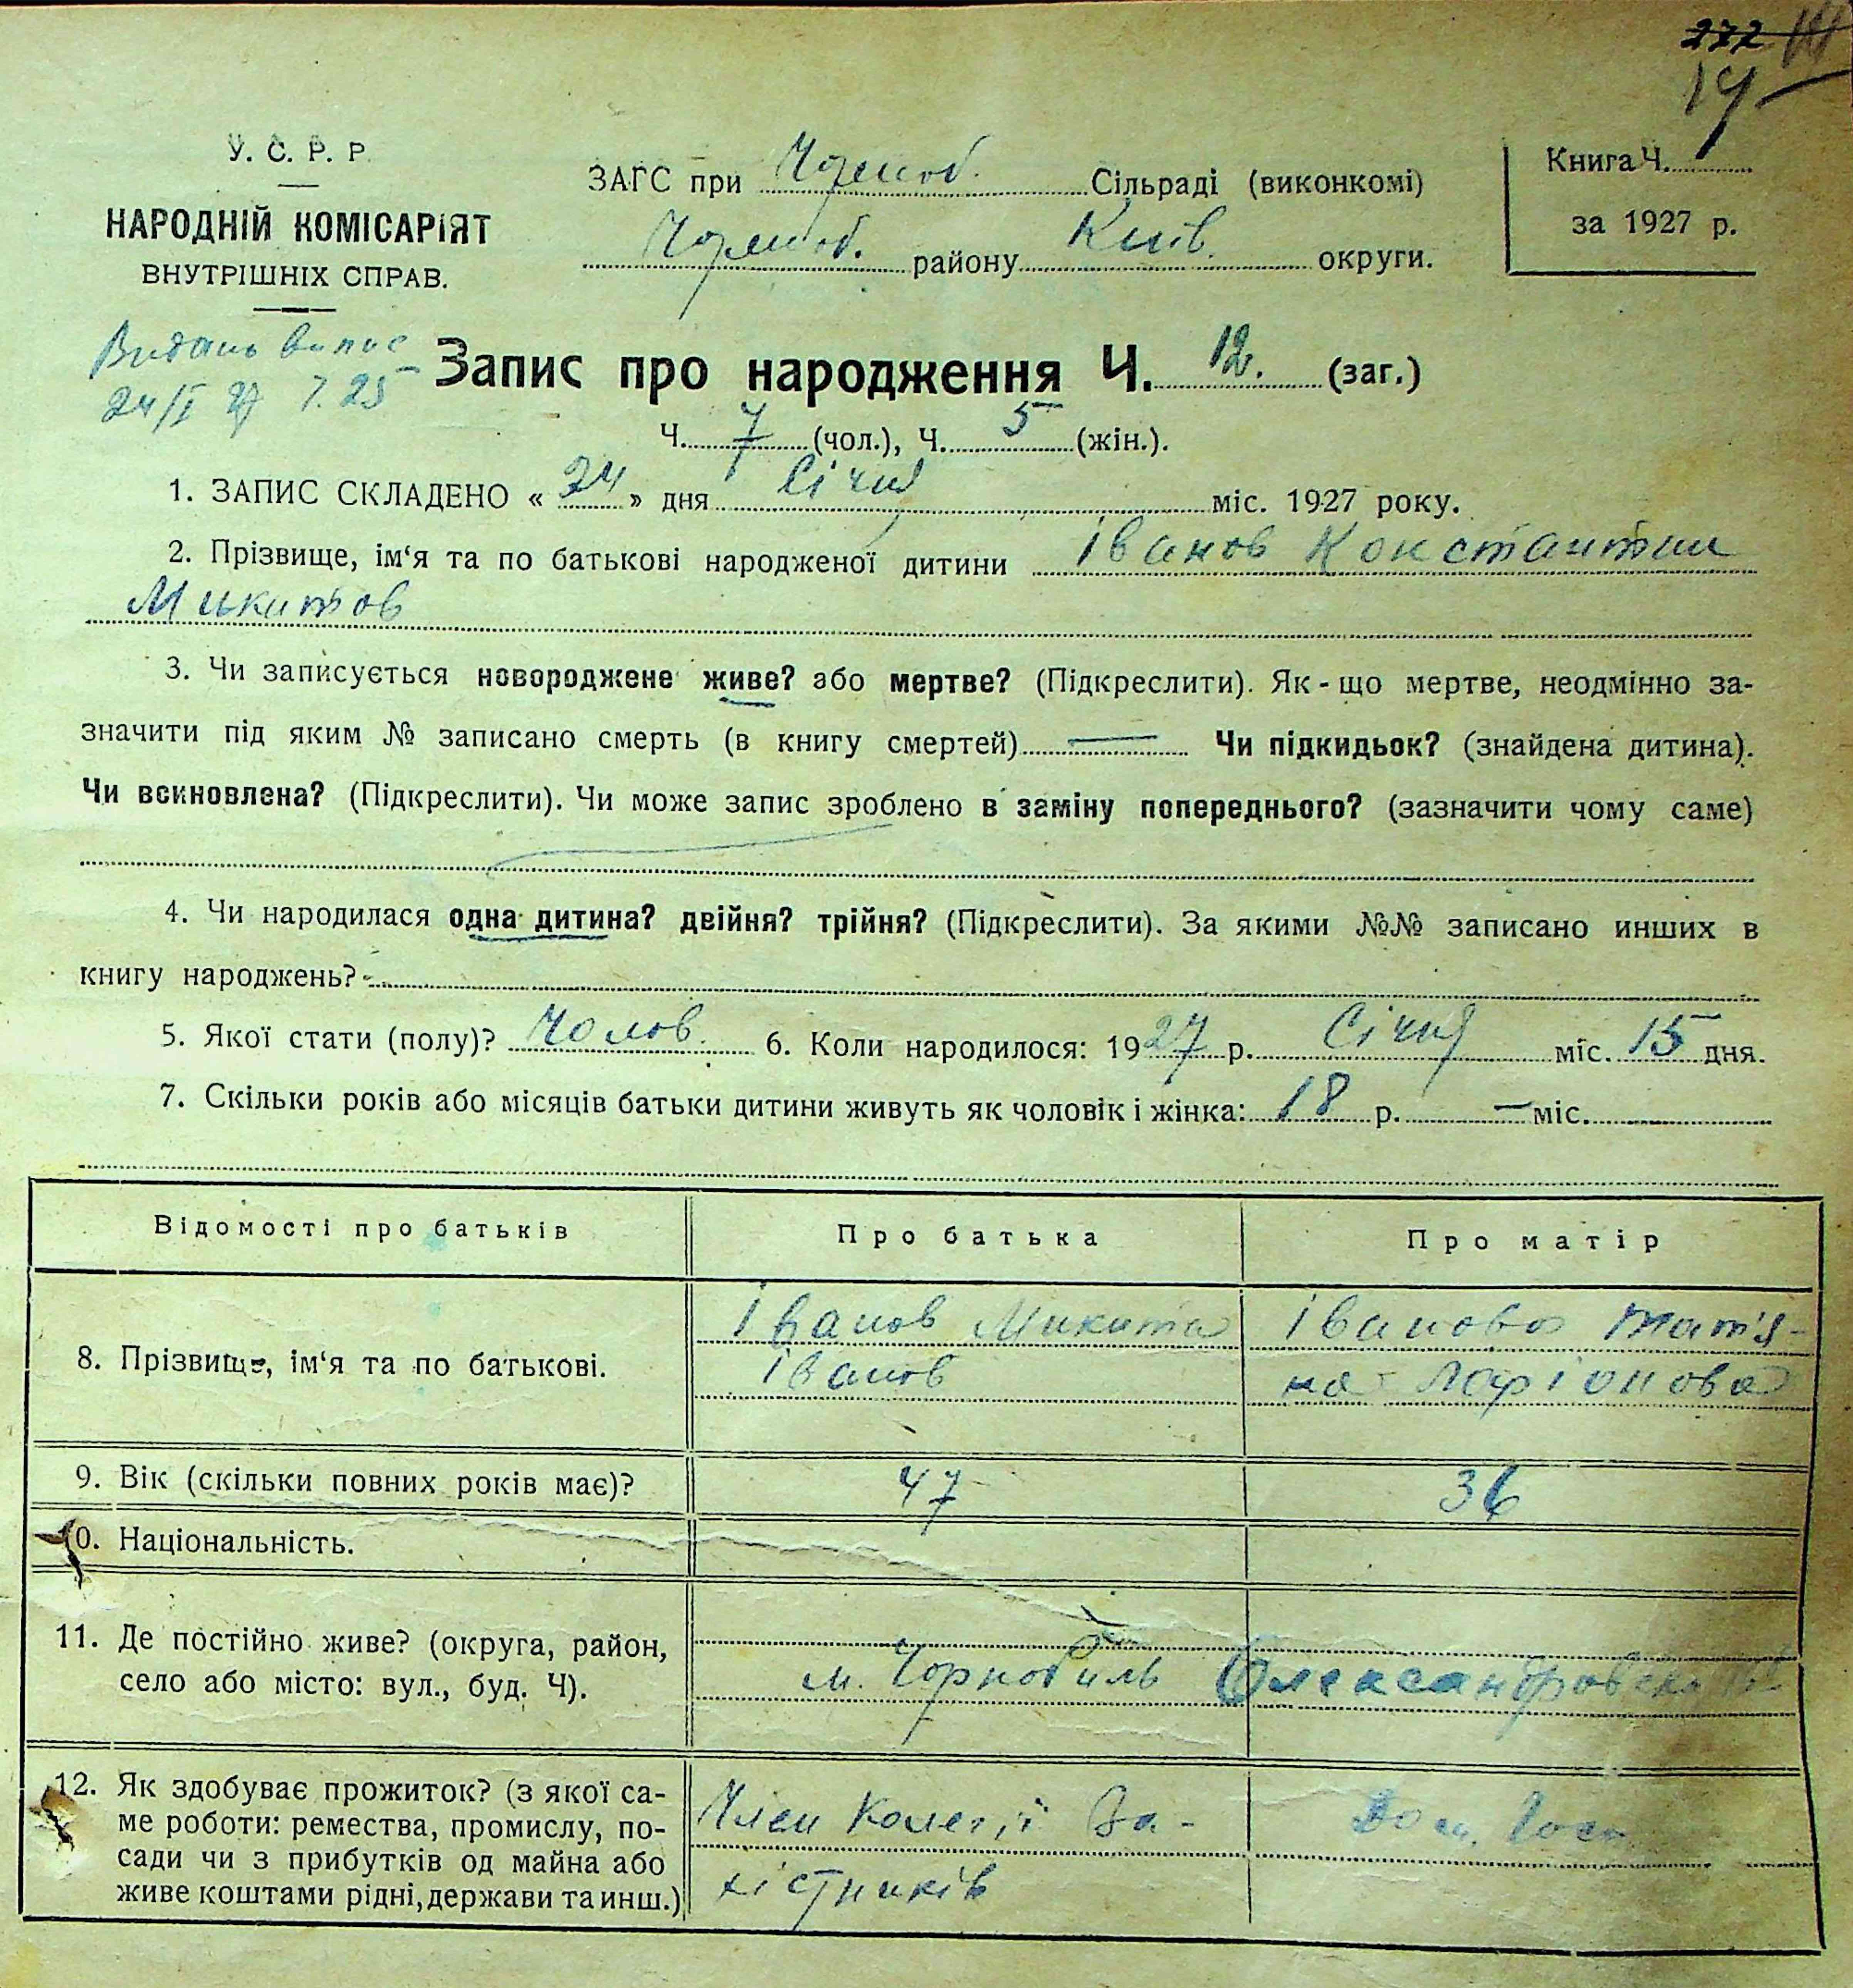 272
14
У. С. Р. Р.
НАРОДНІЙ КОМІСАРІЯТ
ВНУТРІШНІХ СПРАВ.
ЗАГС при Чорноб. Сільраді (виконкомі)
Чорноб. району Київ. округи.
Книга Ч.
за 1927 р.
Видань випис
24/I 27 7.25
Запис про народження Ч. 12. (заг.)
Ч. 7 (чол.), Ч. 5 (жін.).
1. ЗАПИС СКЛАДЕНО « 24 » дня Січня міс. 1927 року.
2. Прізвище, ім‘я та по батькові народженої дитини Іванов Константин
Микитов
3. Чи записується новороджене живе? або мертве? (Підкреслити). Як-що мертве, неодмінно за-
значити під яким № записано смерть (в книгу смертей) — Чи підкидьок? (знайдена дитина).
Чи всиновлена? (Підкреслити). Чи може запис зроблено в заміну попереднього? (зазначити чому саме)
4. Чи народилася одна дитина? двійня? трійня? (Підкреслити). За якими №№ записано инших в
книгу народжень?
5. Якої стати (полу)? Чолов. 6. Коли народилося: 1927 р. Січня міс. 15 дня.
7. Скільки років або місяців батьки дитини живуть як чоловік і жінка: 18 р. — міс.
Відомості про батьків Про батька Про матір
8. Прізвище, ім‘я та по батькові.
Іванов Микита
Іванов
Іванова Тат'я-
на Ларіонова
9. Вік (скільки повних років має)? 47 36
10. Національність.
11. Де постійно живе? (округа, район,
село або місто: вул., буд. Ч).
м. Чорнобиль Олександровска
12. Як здобуває прожиток? (з якої са-
ме роботи: ремества, промислу, по-
сади чи з прибутків од майна або
живе коштами рідні, держави та инш.)
Член Колегії За-
хістників
Дом. Госп.